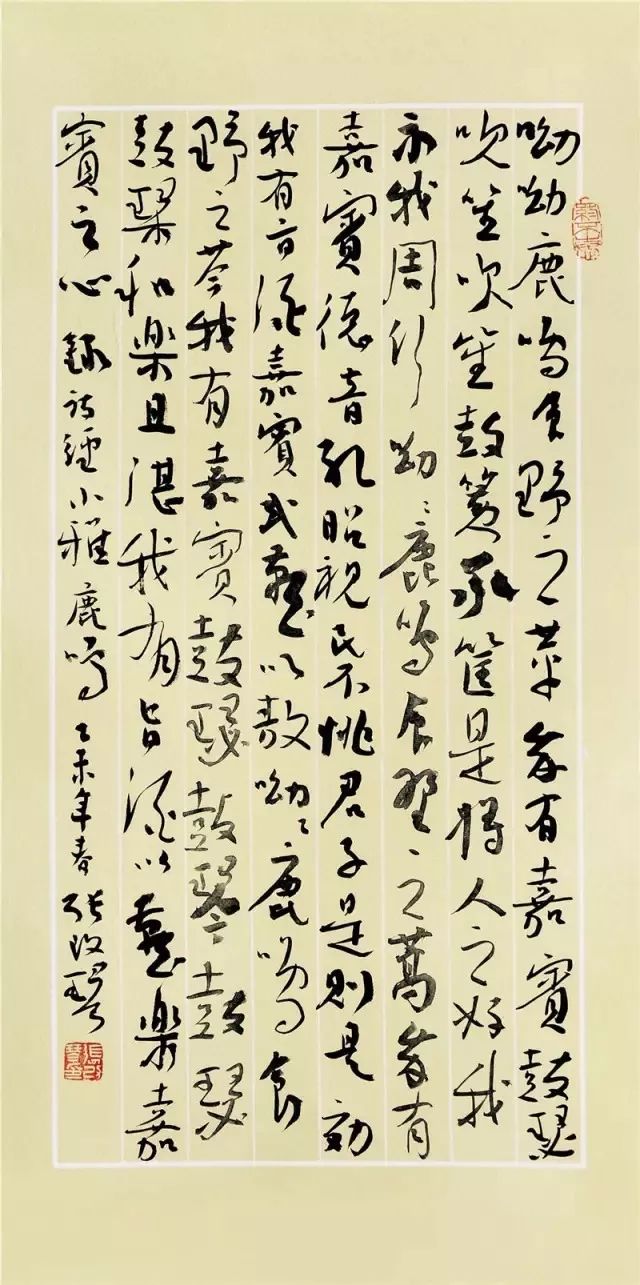 呦呦鹿鳴食野之苹我有嘉賓鼓瑟
吹笙吹笙鼓簧承筐是將人之好我
示我周行呦〻鹿鳴食野之蒿我有
嘉賓德音孔昭視民不恌君子是則是効
我有旨酒嘉賓式燕以敖呦〻鹿鳴食
野之芩我有嘉賓鼓瑟鼓琴鼓瑟
鼓琴和樂且湛我有旨酒以燕樂嘉
賓之心 錄詩經小雅鹿鳴 乙未年春 張改琴